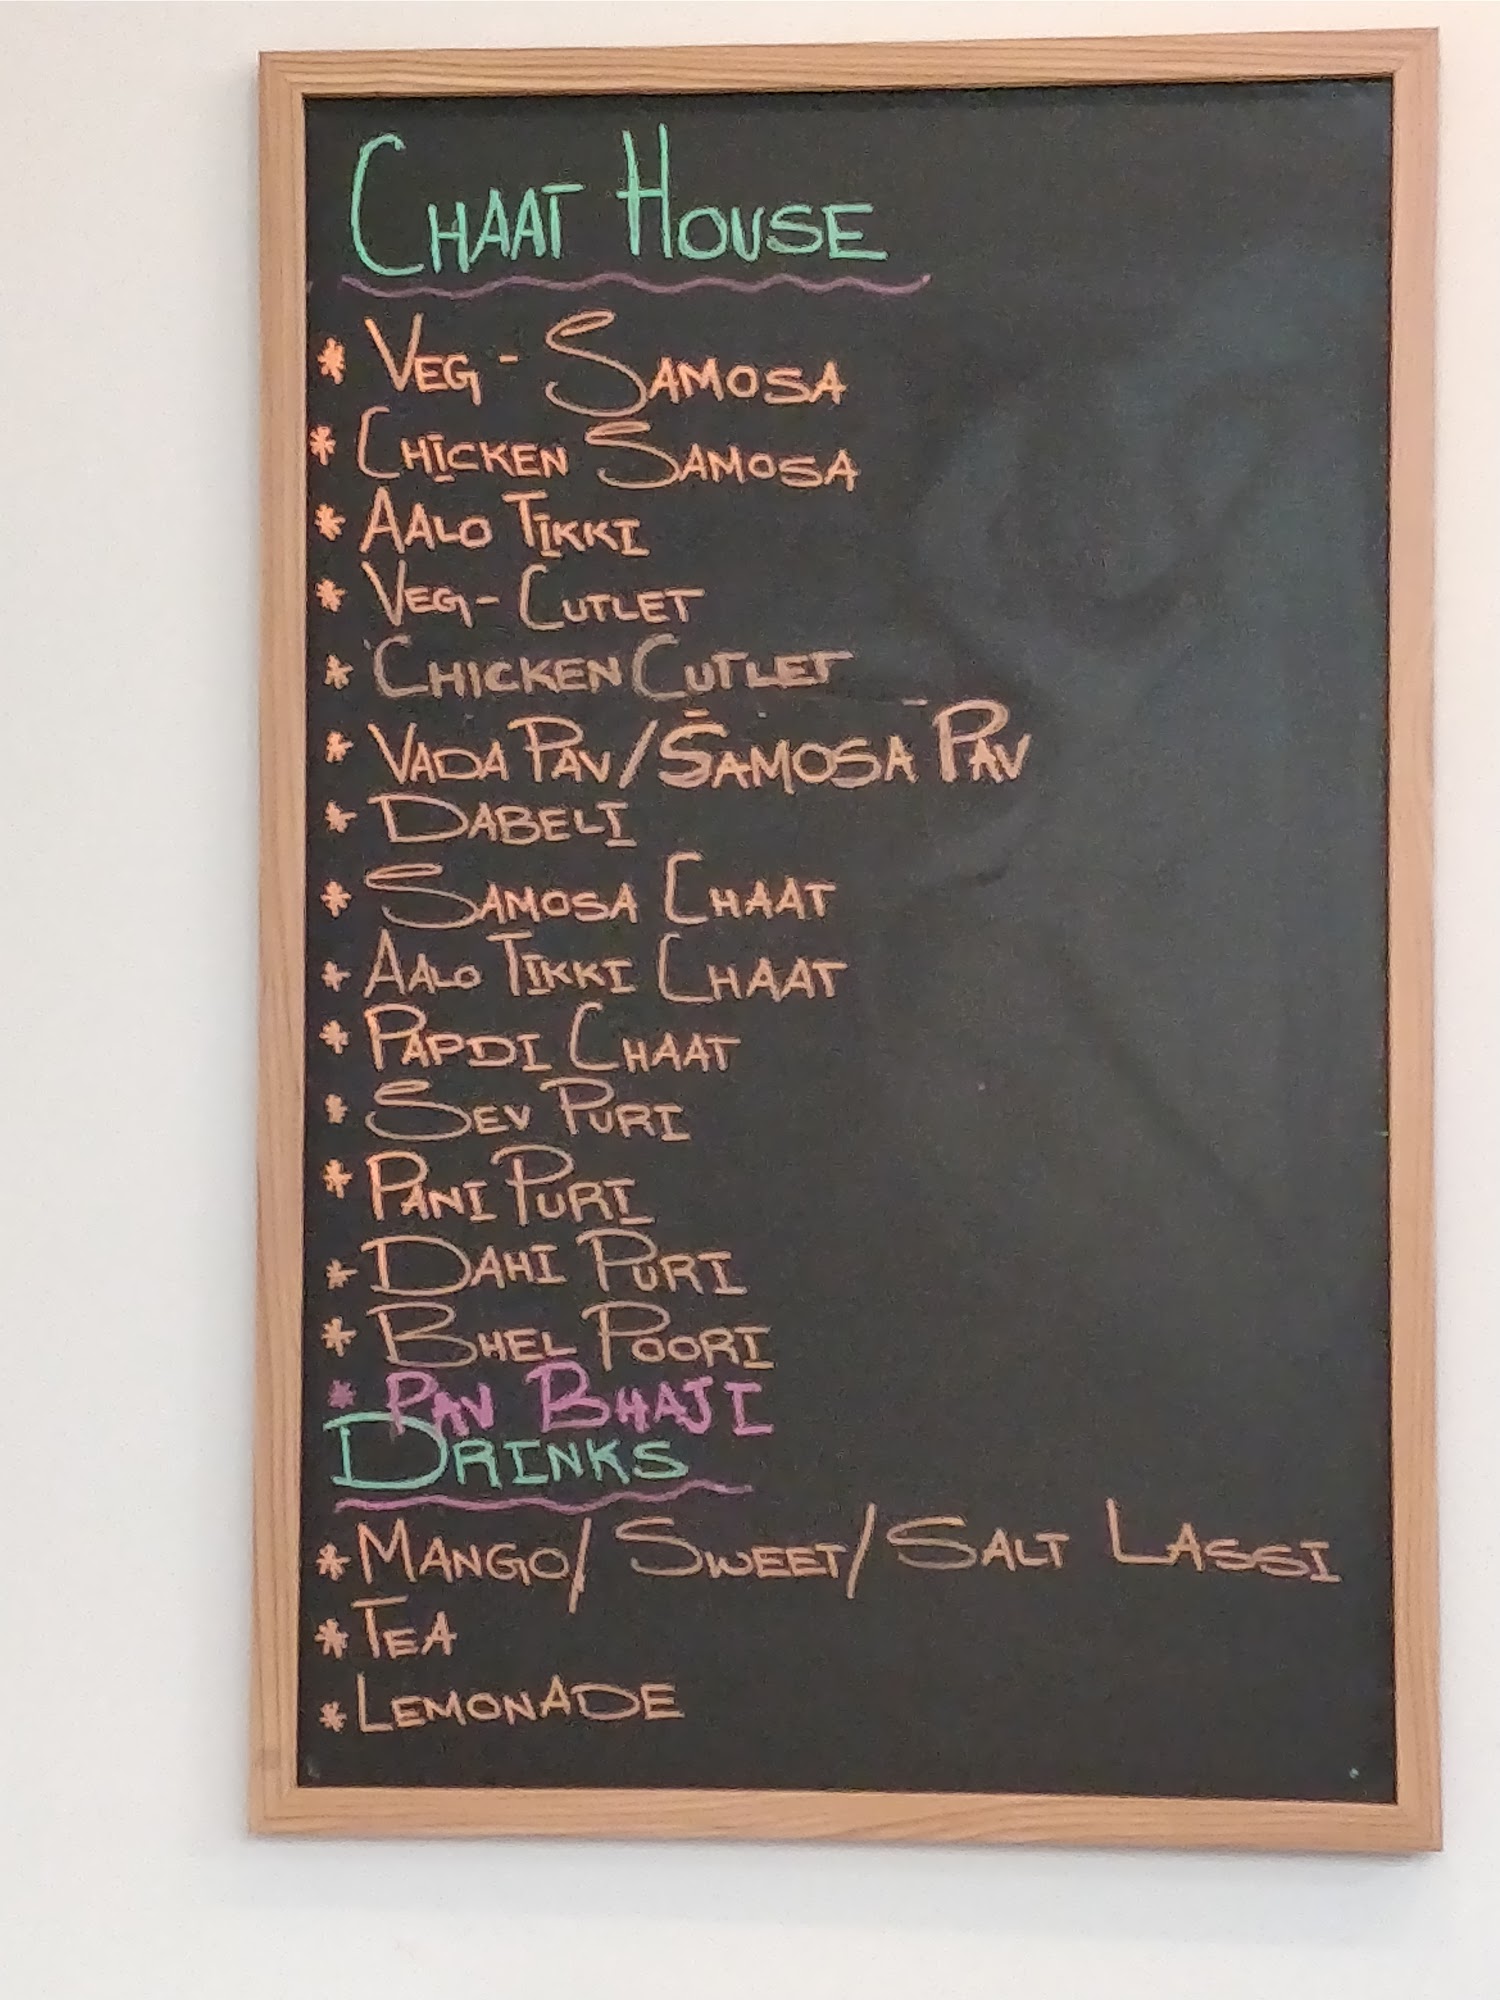 CHAAT HOUSE
* VEG - SAMOSA
* CHICKEN SAMOSA
* AALO TIKKI
* VEG - CUTLET
* CHICKEN CUTLET
* VADA PAV / SAMOSA PAV
* DABELI
* SAMOSA CHAAT
* AALO TIKKI CHAAT
* PAPDI CHAAT
* SEV PURI
* PANI PURI
* DAHI PURI
* BHEL POORI
* PAV BHAJI
DRINKS
* MANGO / SWEET / SALT LASSI
* TEA
* LEMONADE